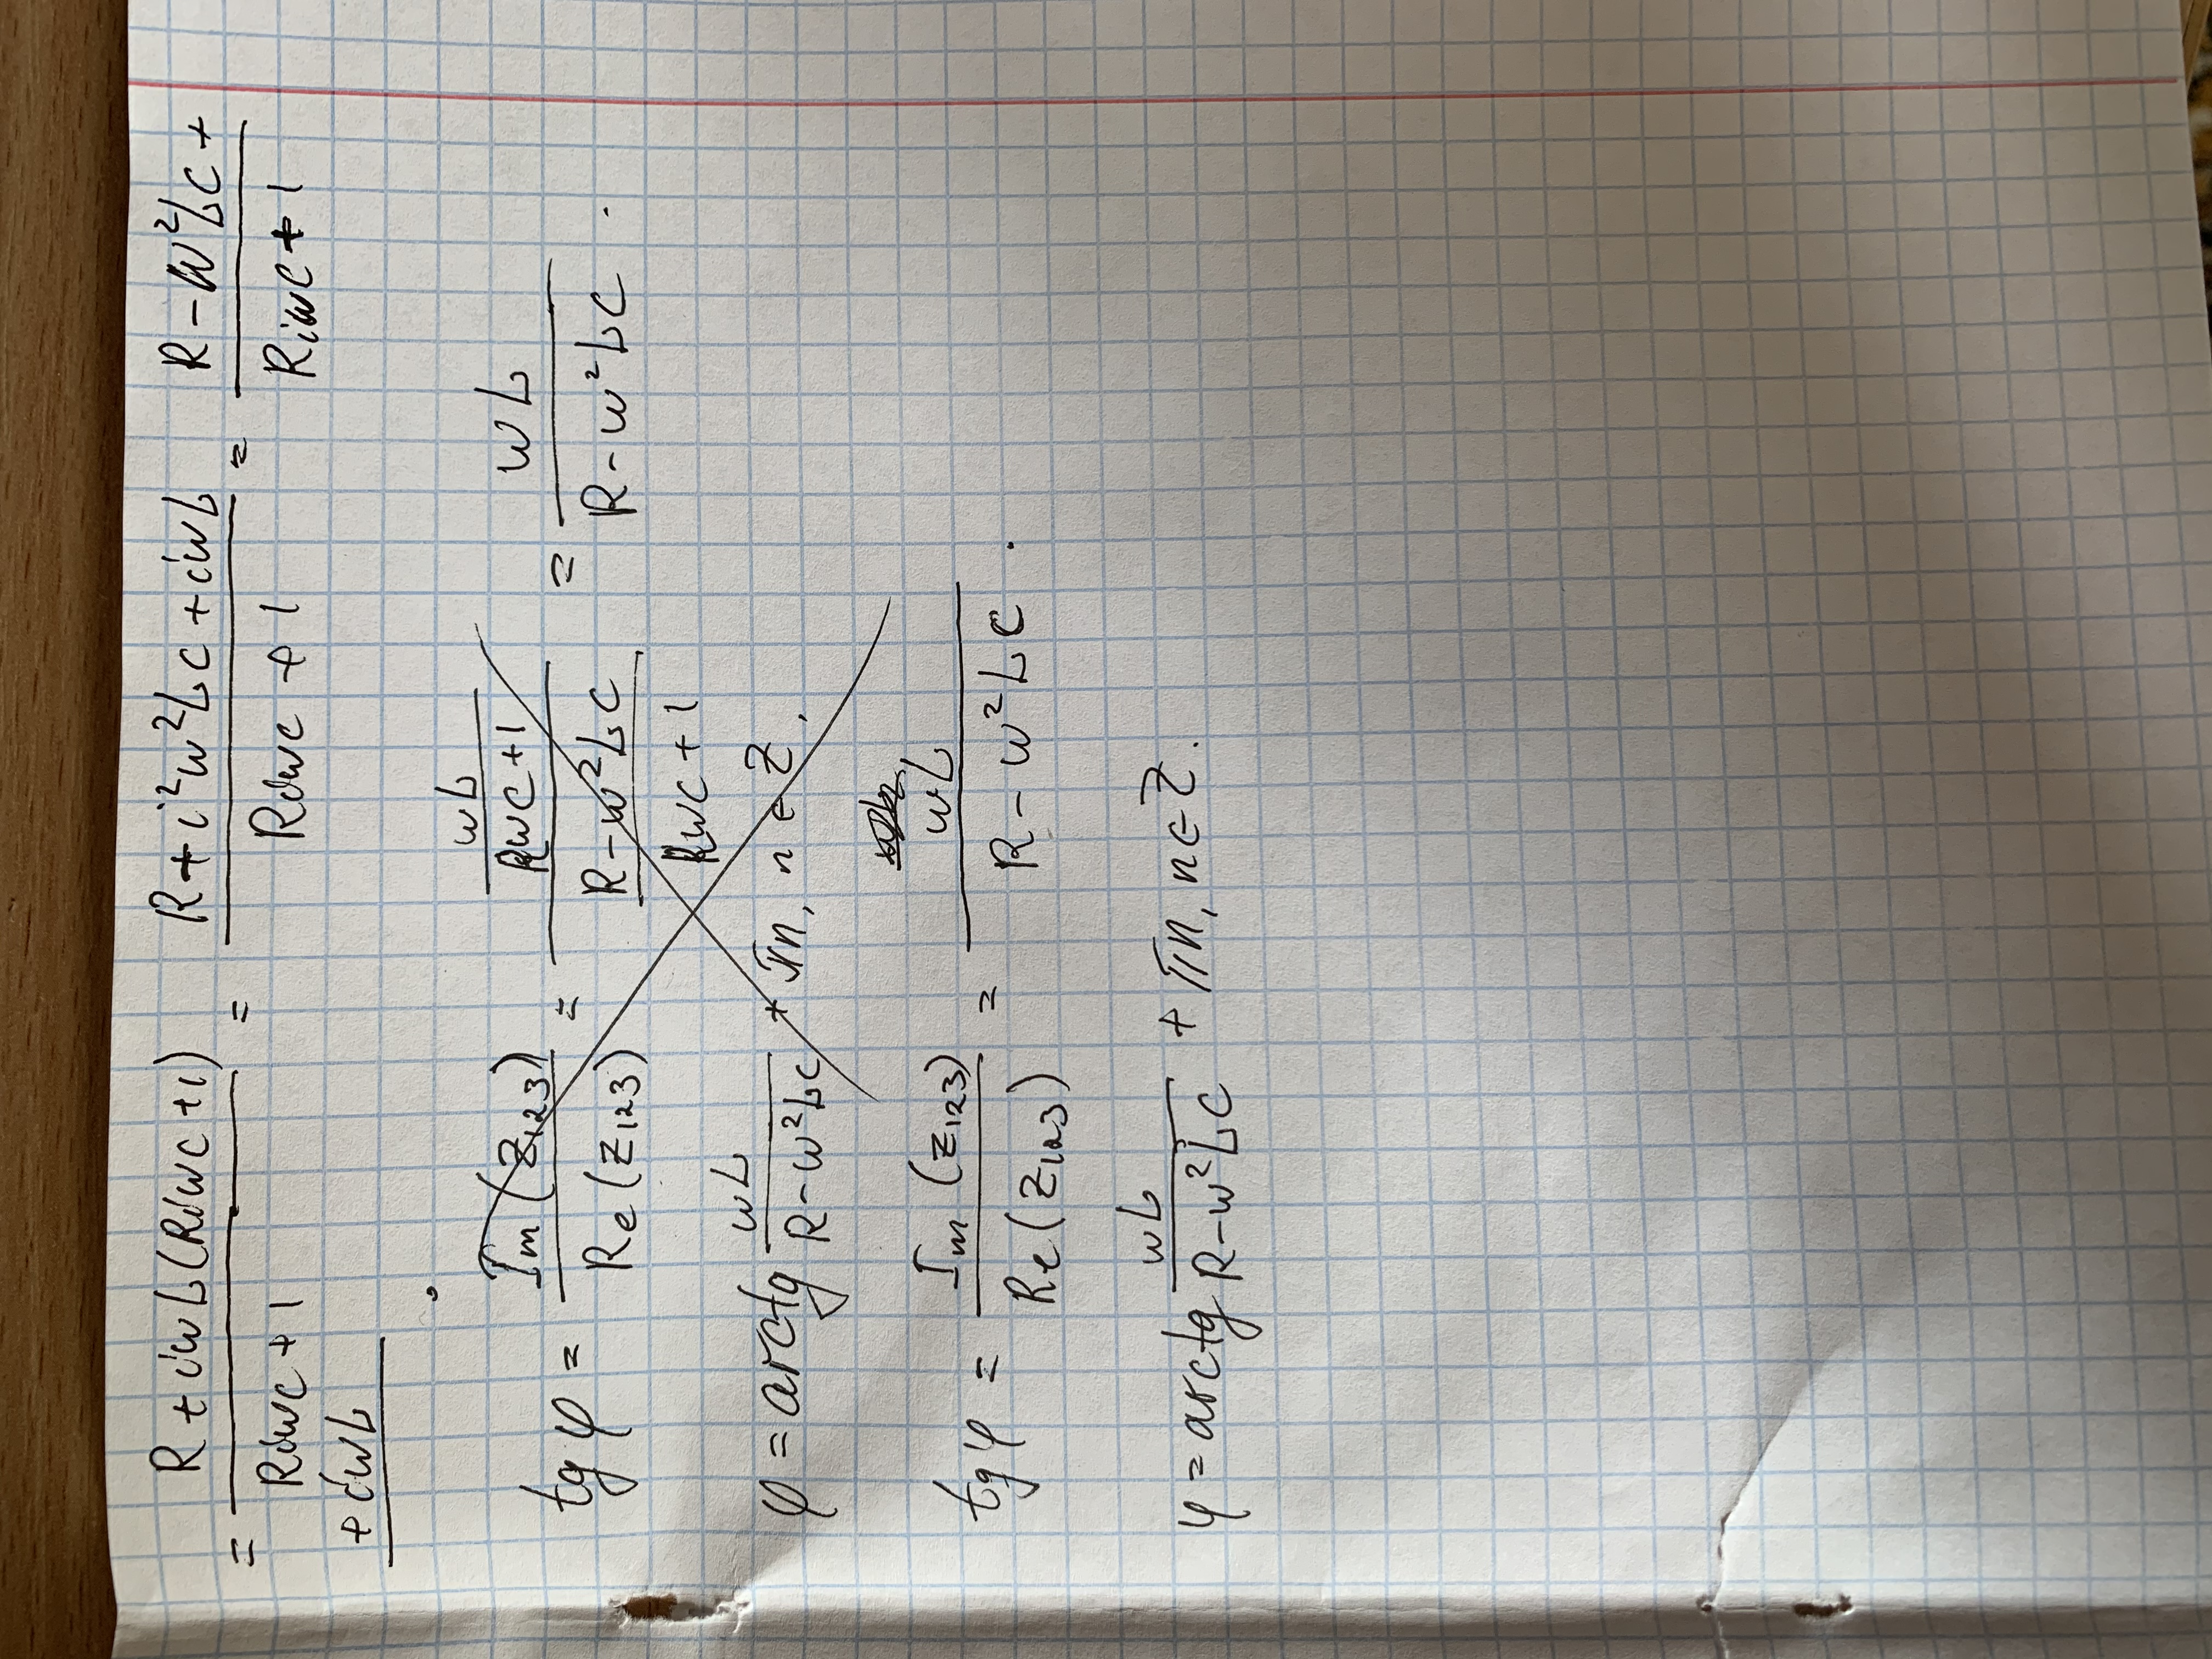 = (R + iwL(Riwc + 1))/(Riwc + 1) = (R + i²w²LC + iwL)/(Riwc + 1) = (R - w²LC +)/(Riwc + 1)
+ iwL
tg φ = Im(Z₁₂₃)/Re(Z₁₂₃) = (wL/(Rwc + 1))/((R - w²LC)/(Rwc + 1)) = wL/(R - w²LC) .
φ = arctg wL/(R - w²LC) + πn, n ∈ Z.
tg φ = Im(Z₁₂₃)/Re(Z₁₂₃) = wL/(R - w²LC) .
φ = arctg wL/(R - w²LC) + πn, n ∈ Z.